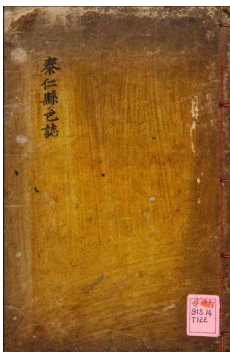 泰仁縣邑誌
915.14
T122